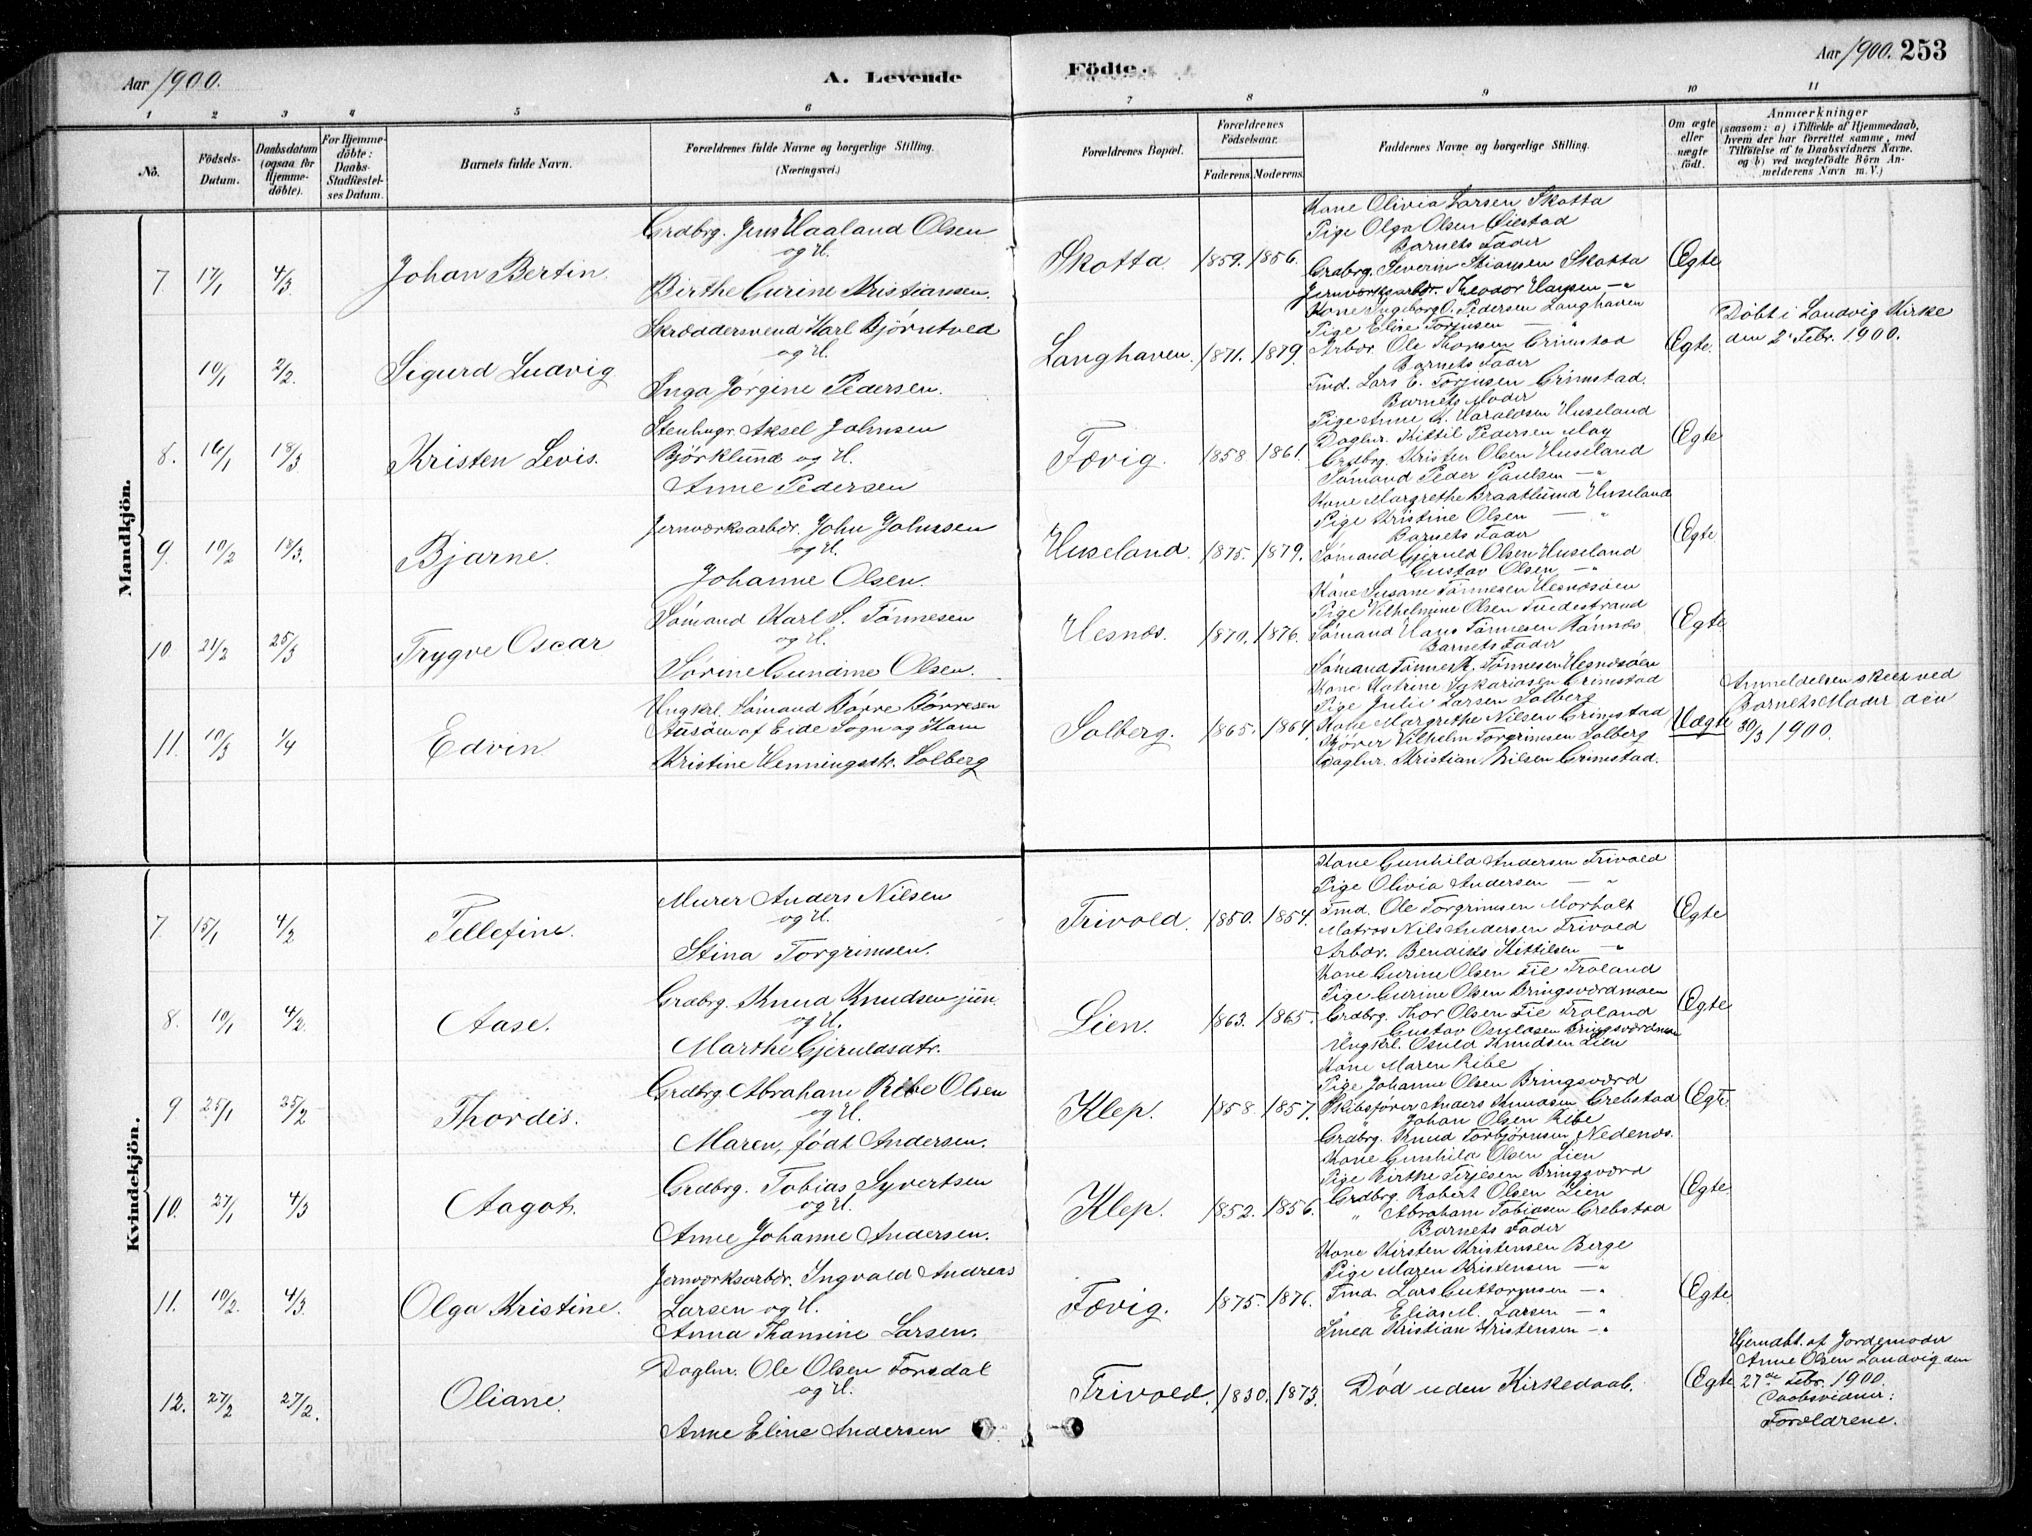 Aar 1900.
A. Levende
Födte.
Aar 1900. 253
1 2 3 4 5 6 7 8 9 10 11
No.
Födsels-Datum.
Daabsdatum (ogsaa for Hjemmedöbte).
For Hjemmedöbte: Daabs-Stadfæstelses Datum.
Barnets fulde Navn.
Forældrenes fulde Navne og borgerlige Stilling. (Næringsvei.)
Forældrenes Bopæl.
Forældrenes Födselsaar.
Faderens. Moderens.
Faddernes Navne og borgerlige Stilling.
Om ægte eller uægte födt.
Anmærkninger
(saasom: a) i Tilfælde af Hjemmedaab, hvem der har forrettet samme, med Tilföielse af to Daabsvidners Navne. og b) ved uægtefödte Börn Anmelderens Navn m. V.)
Mandkjön.
7 17/1 4/3 Johan Bertin.
Grdbrg. Jens Haaland Olsen
og H.
Birthe Gurine Kristiansen.
Skotta 1859. 1856.
Kone Olivia Larsen Skotta
Pige Olga Olsen Øiestad
Barnets Fader
Grdbrg. Severin Stiansen Skotta
Jernværksarbdr. Theodor Hansen —"
Ægte
10/1 2/2. Sigurd Ludvig
Skræddersvend Karl Björntved
og H.
Inga Jörgine Pedersen.
Langhaven. 1871. 1879.
Kone Ingeborg O. Pedersen Langhaven
Pige Elise Torjusen — "
Arbdr. Ole Thorsen Grimstad
Barnets Fader
Tmd. Lars E. Torjusen Grimstad.
Ægte.
Döbt i Landvig Kirke
den 2 Febr. 1900.
8. 16/1 18/3 Kristen Levis.
Stenhugr. Aksel Johnsen
Björklund og H.
Anne Pedersen
Fævig. 1858. 1861.
Barnets Moder
Pige Anne K. Haraldsen Huseland
Daglnr. Kittil Pedersen Moy
Grdbrg. Kristen Olsen Huseland
Sømand Peder Paulsen —"
Ægte
9. 10/2 18/3. Bjarne.
Jernværksarbdr. John Johnsen
og H.
Johanne Olsen.
Huseland. 1875. 1879.
Kone Margrethe Braatlund Huseland
Pige Kristine Olsen — "
Barnets Fader
Sømand Gjeruld Olsen Huseland
Gustav Olsen —"
Ægte
10 21/2 25/3 Trygve Oscar
Sømand Karl S. Tönnesen
og H.
Sorine Gundine Olsen.
Hesnæs. 1870. 1876.
Kone Susane Tönnesen Hesnæsöen
Pige Vilhelmine Olsen Tvedestrand
Sømand Hans Tönnesen Rönnæs.
Barnets Fader
Sømand Tönnes K. Tönnesen Hesnæsöen
Ægte
11. 10/3 1/4 Edvin
Ungkrl. Sømand Börre Börresen
Auröen af Eide Sogn og
Kristine Henningsdtr. Solberg
Solberg. 1865. 1864.
Kone Katrine Sakariasen Grimstad
Pige Julie Larsen Solberg
Kone Margrethe Nilsen Grimstad
Vilhelm Torgrimsen Solberg
Daglnr. Kristian Nilsen Grimstad.
Uægte
Anmeldelsen skeet ved
Barnets Moder den
30/3 1900.
Kvindekjön.
7. 15/1 4/2 Tellefine.
Murer Anders Nilsen
og H.
Stina Torgrimsen.
Trivold. 1850. 1854.
Kone Gunhild Andersen Trivold
Pige Olivia Andersen — "
Tmd. Ole Torgrimsen Morholt
Matros Nils Andersen Trivold
Arbdr. Bendiks Kittilsen —"
Ægte
8. 10/1 4/2. Aase.
Grdbrg. Knud Knudsen jün.
og H.
Marthe Gjeruldsdtr.
Lien. 1863. 1865.
Kone Gurine Olsen Lie Froland
Pige Gurine Olsen Bringsværdmoen
Grdbrg. Thor Olsen Lie Froland
Gustav Osuldsen Bringsværdmoen
Ungkrl. Osuld Knudsen Lien
Ægte
9 25/1 25/2 Thordis.
Grdbrg. Abraham Ribe Olsen
og H.
Maren, født Andersen.
Klep. 1858. 1857.
Kone Maren Ribe
Pige Johanne Olsen Bringsværd
Skibsfører Anders Knudsen Grebstad
Johan Olsen Ribe
Grdbrg. Knud Torbjörnsen Nedenæs.
Ægte.
10. 27/1 4/3 Aagot.
Grdbrg. Tobias Syvertsen
og H.
Anne Johanne Andersen.
Klep. 1852. 1856.
Kone Gunhild Olsen Lien
Pige Birthe Terjesen Bringsværd
Grdbrg. Robert Olsen Lien
" Abraham Tobiasen Grebstad
Barnets Fader
Ægte.
11. 10/2. 4/3. Olga Kristine.
Jernværksarbdr. Ingvald Andreas
Larsen og H.
Anna Thamine Larsen.
Fævig. 1875. 1876.
Kone Kirsten Kristensen Berge
Pige Maren Kristensen —"
Tmd. Lars Guttormsen —"
Elias M. Larsen —"
Smed Kristian Kristensen —"
Ægte.
12. 27/2 27/2. Oliane.
Daglnr. Ole Olsen Forsdal
og H.
Anne Eline Andersen
Trivold. 1830. 1873.
Död uden Kirkedaab.
Ægte
Hjemdbt. af Jordemoder
Anne Olsen Landvig den
27de Febr. 1900.
Daabsvidner:
Forældrene.